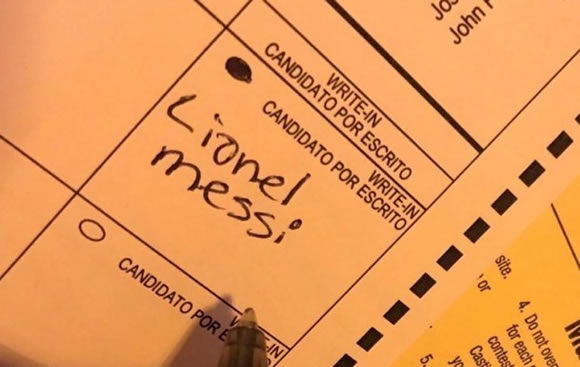 Jos
John
WRITE-IN
CANDIDATO POR ESCRITO
WRITE-IN
CANDIDATO POR ESCRITO
Lionel
messi
CANDIDATO POR
site.
or
4. Do not
for each
contest
5.